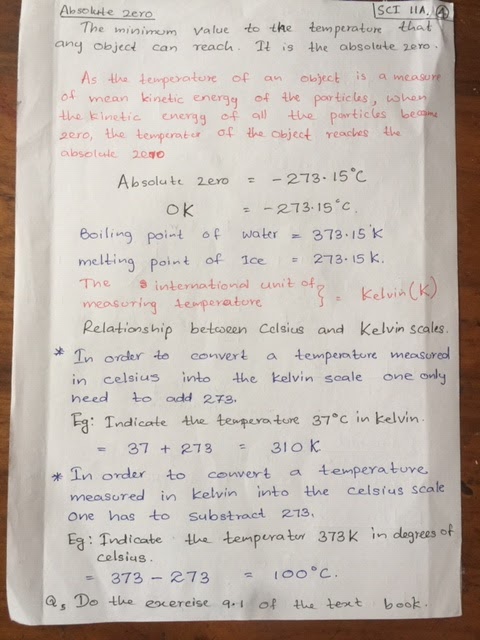 Absolute zero
SCI 11A. 4
The minimum value to the temperature that
any object can reach. It is the absolute zero.
As the temperature of an object is a measure
of mean kinetic energy of the particles, when
the kinetic energy of all the particles become
zero, the temperatur of the object reaches the
absolute zero
Absolute zero = -273.15°C
OK = -273.15°C.
Boiling point of water = 373.15°K
melting point of Ice = 273.15 K.
The international unit of
measuring temperature } = Kelvin (K)
Relationship between Celsius and Kelvin scales.
* In order to convert a temperature measured
in celsius into the kelvin scale one only
need to add 273.
Eg: Indicate the temperature 37°C in kelvin.
= 37 + 273 = 310 K.
* In order to convert a temperature
measured in kelvin into the celsius scale
one has to substract 273.
Eg: Indicate the temperatur 373K in degrees of
celsius.
= 373 - 273 = 100°C.
Qs Do the exercise 9.1 of the text book.